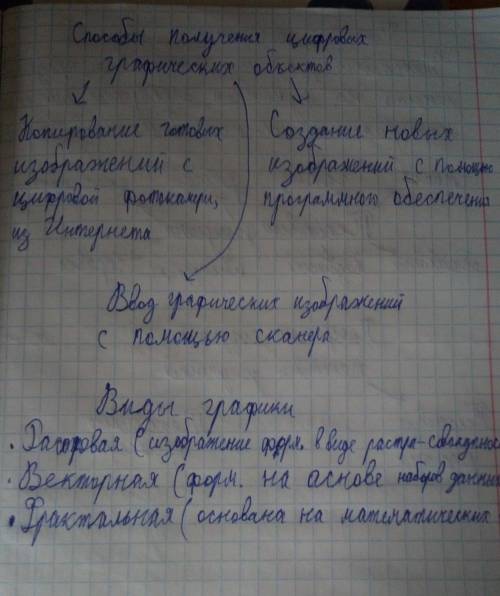 Способы получения цифровых
графических объектов
Копирование готовых
изображений с
цифровой фотокамеры,
из Интернета
Создание новых
изображений с помощью
программного обеспечения
Ввод графических изображений
с помощью сканера
Виды графики
• Растровая (изображение форм. в виде растра-
• Векторная (форм. на аснове наборов данных
• Фрактальная (основана на математических